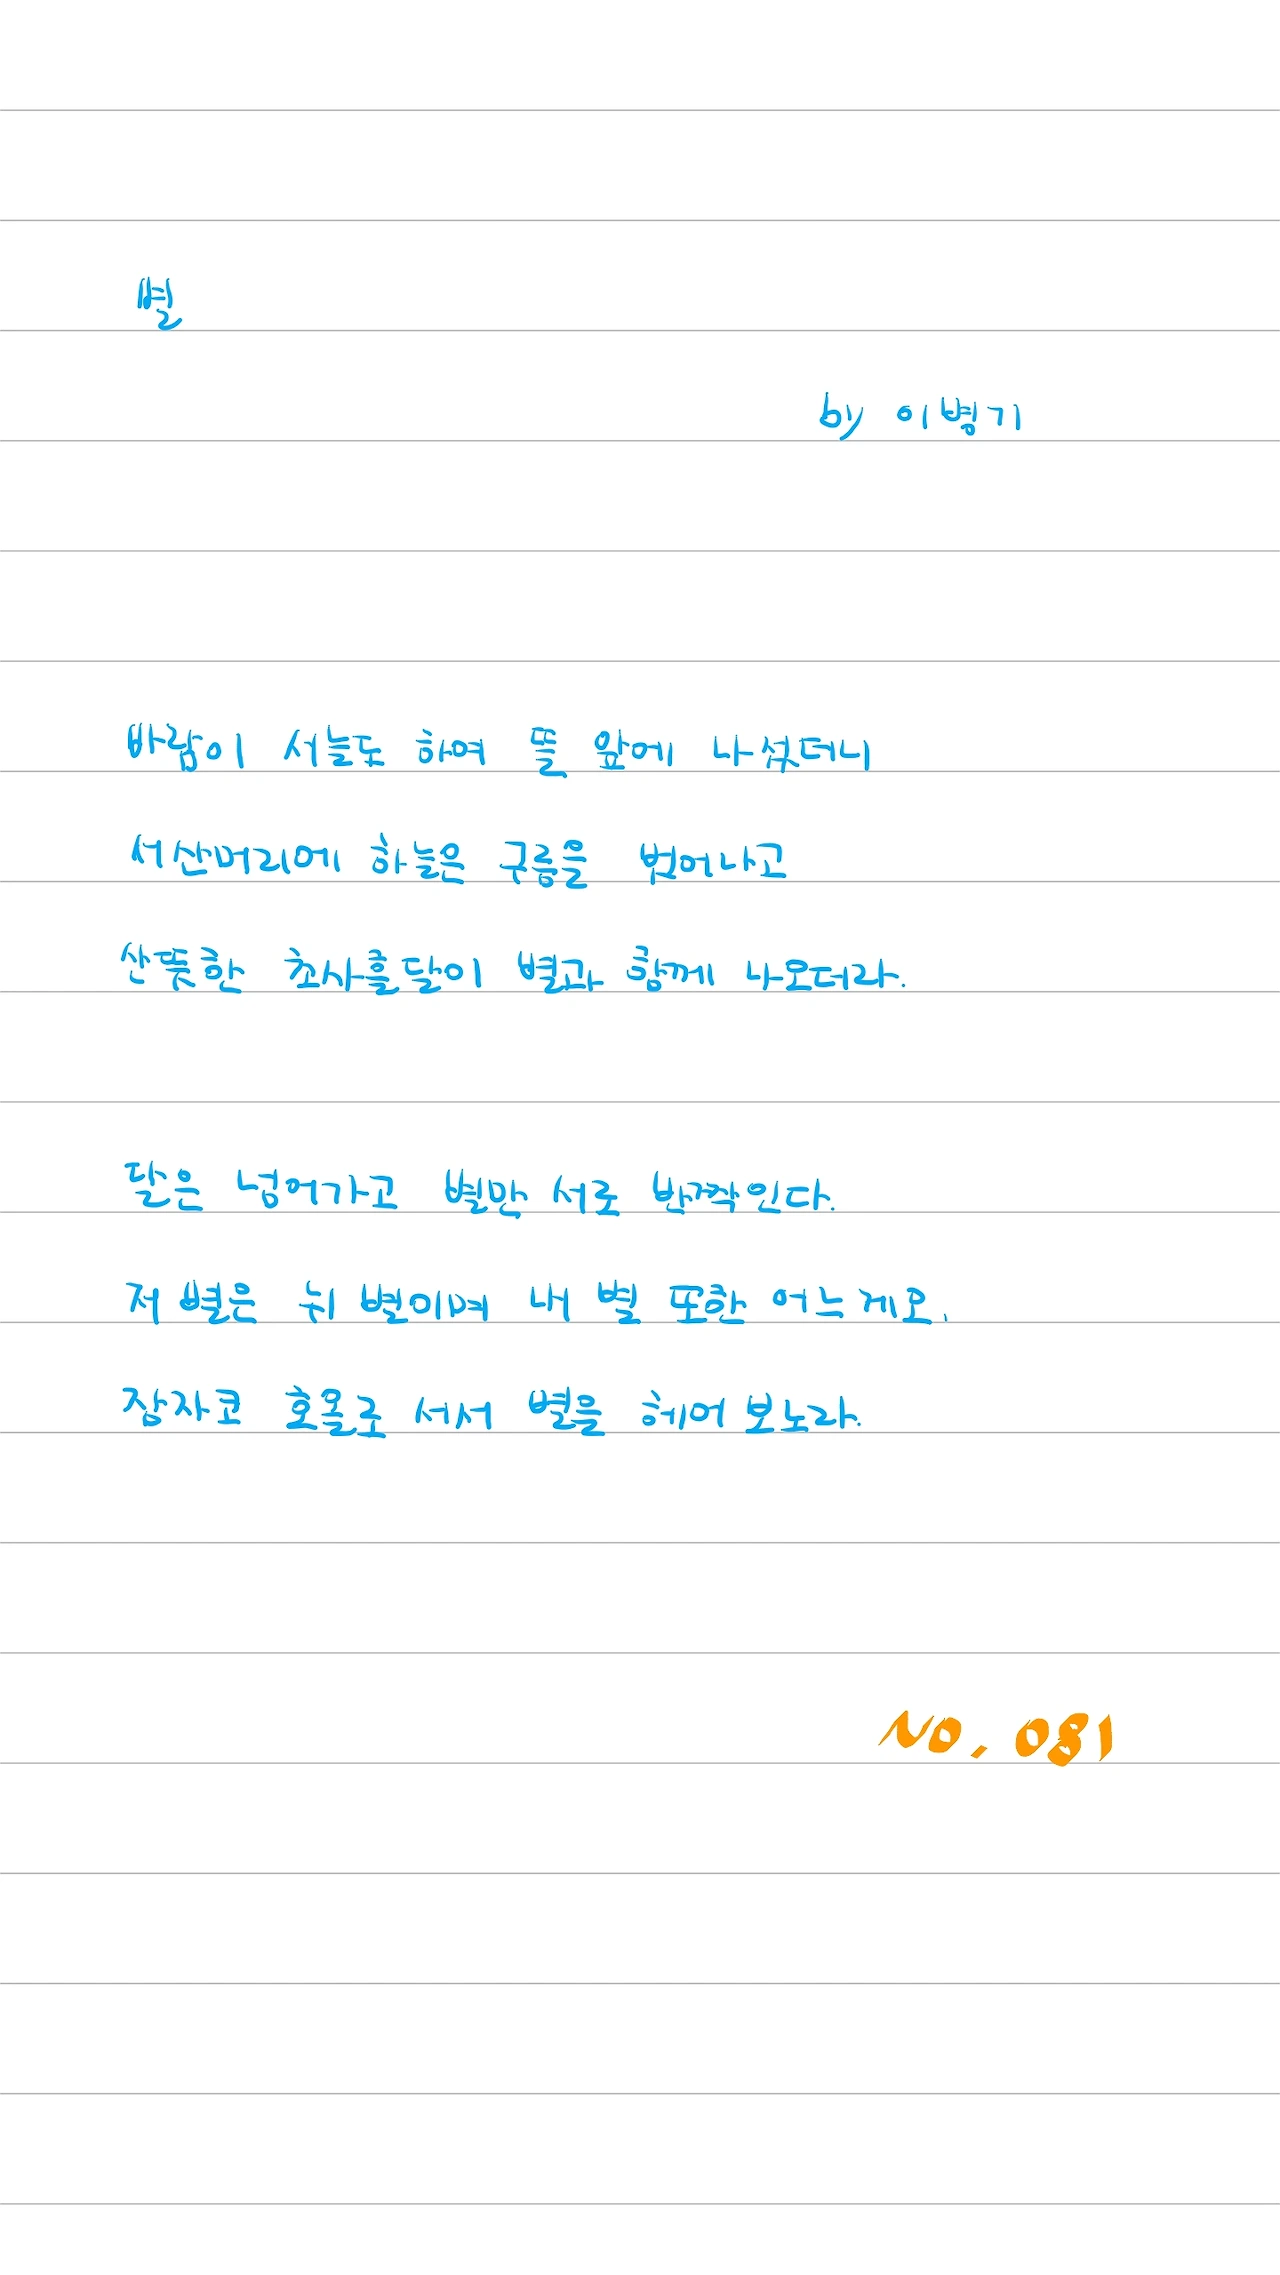 별
by 이병기
바람이 서늘도 하여 뜰 앞에 나섰더니
서산머리에 하늘은 구름을 벗어나고
산뜻한 초사흘달이 별과 함께 나오더라.
달은 넘어가고 별만 서로 반짝인다.
저 별은 뉘 별이며 내 별 또한 어느게오.
잠자코 호올로 서서 별을 헤어보노라.
NO. 081